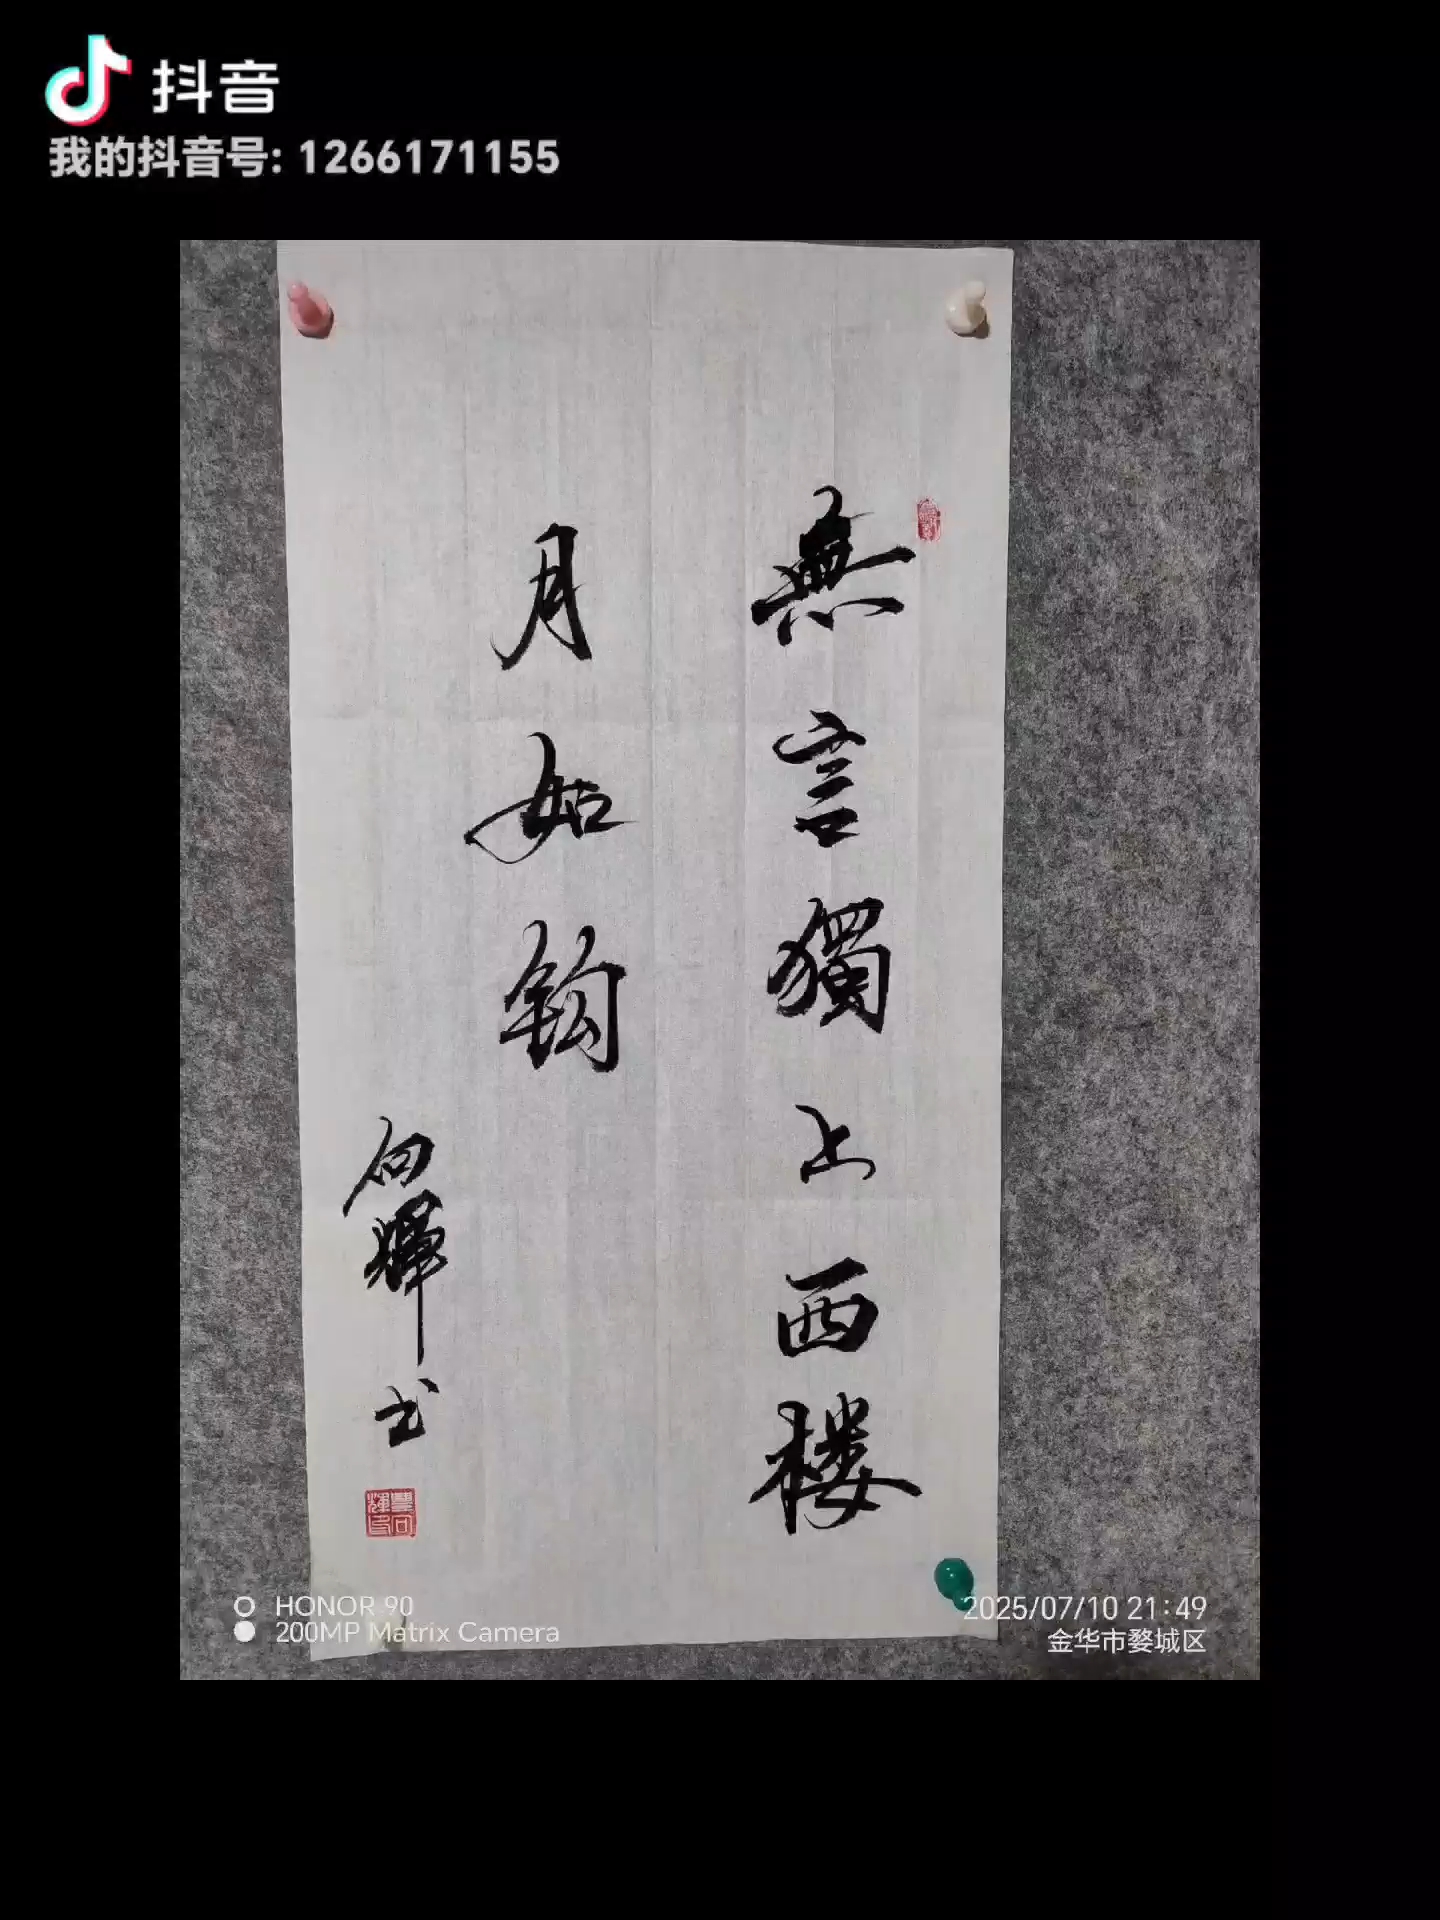 抖音
我的抖音号: 1266171155
無言獨上西楼
月如钩
向輝书
HONOR 90
200MP Matrix Camera
2025/07/10 21:49
金华市婺城区